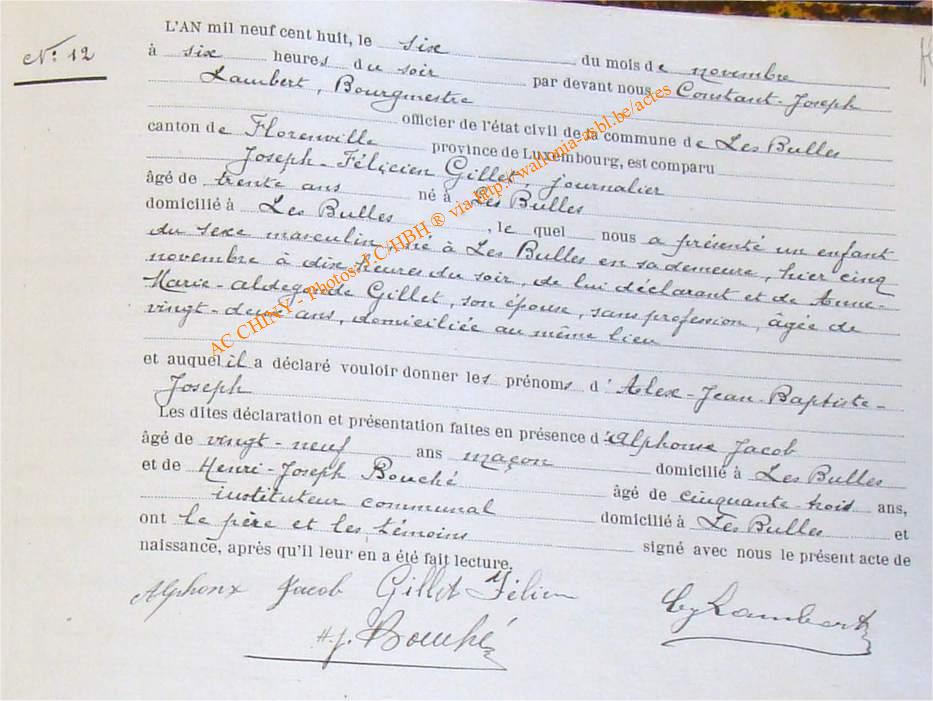 N° 12
L'AN mil neuf cent huit, le six du mois de novembre
à six heures du soir par devant nous Constant-Joseph
Lambert, Bourgmestre
officier de l'état civil de la commune de Les Bulles
canton de Florenville province de Luxembourg, est comparu
Joseph-Félicien Gillet, journalier
âgé de trente ans né à Les Bulles
domicilié à Les Bulles, le quel nous a présenté un enfant
du sexe masculin, né à Les Bulles en sa demeure, hier cinq
novembre à dix heures du soir, de lui déclarant et de Anne-
Marie-aldegonde Gillet, son épouse, sans profession, âgée de
vingt-deux ans, domiciliée au même lieu
et auquel il a déclaré vouloir donner les prénoms d'Alex-Jean-Baptiste-
Joseph
Les dites déclaration et présentation faites en présence d'Alphonse Jacob
âgé de vingt-neuf ans maçon domicilié à Les Bulles
et de Henri-Joseph Bouché âgé de cinquante trois ans,
instituteur communal domicilié à Les Bulles et
ont le père et les témoins signé avec nous le présent acte de
naissance, après qu'il leur en a été fait lecture.
Jacob Gillet Lambert
H. J. Bouché
AC CHINY - Photos J.C/HBH ® via http://wallonia-asbl.be/actes